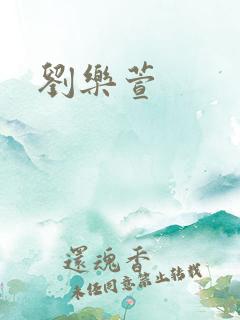 劉樂萱
還魂香
未经同意禁止转载